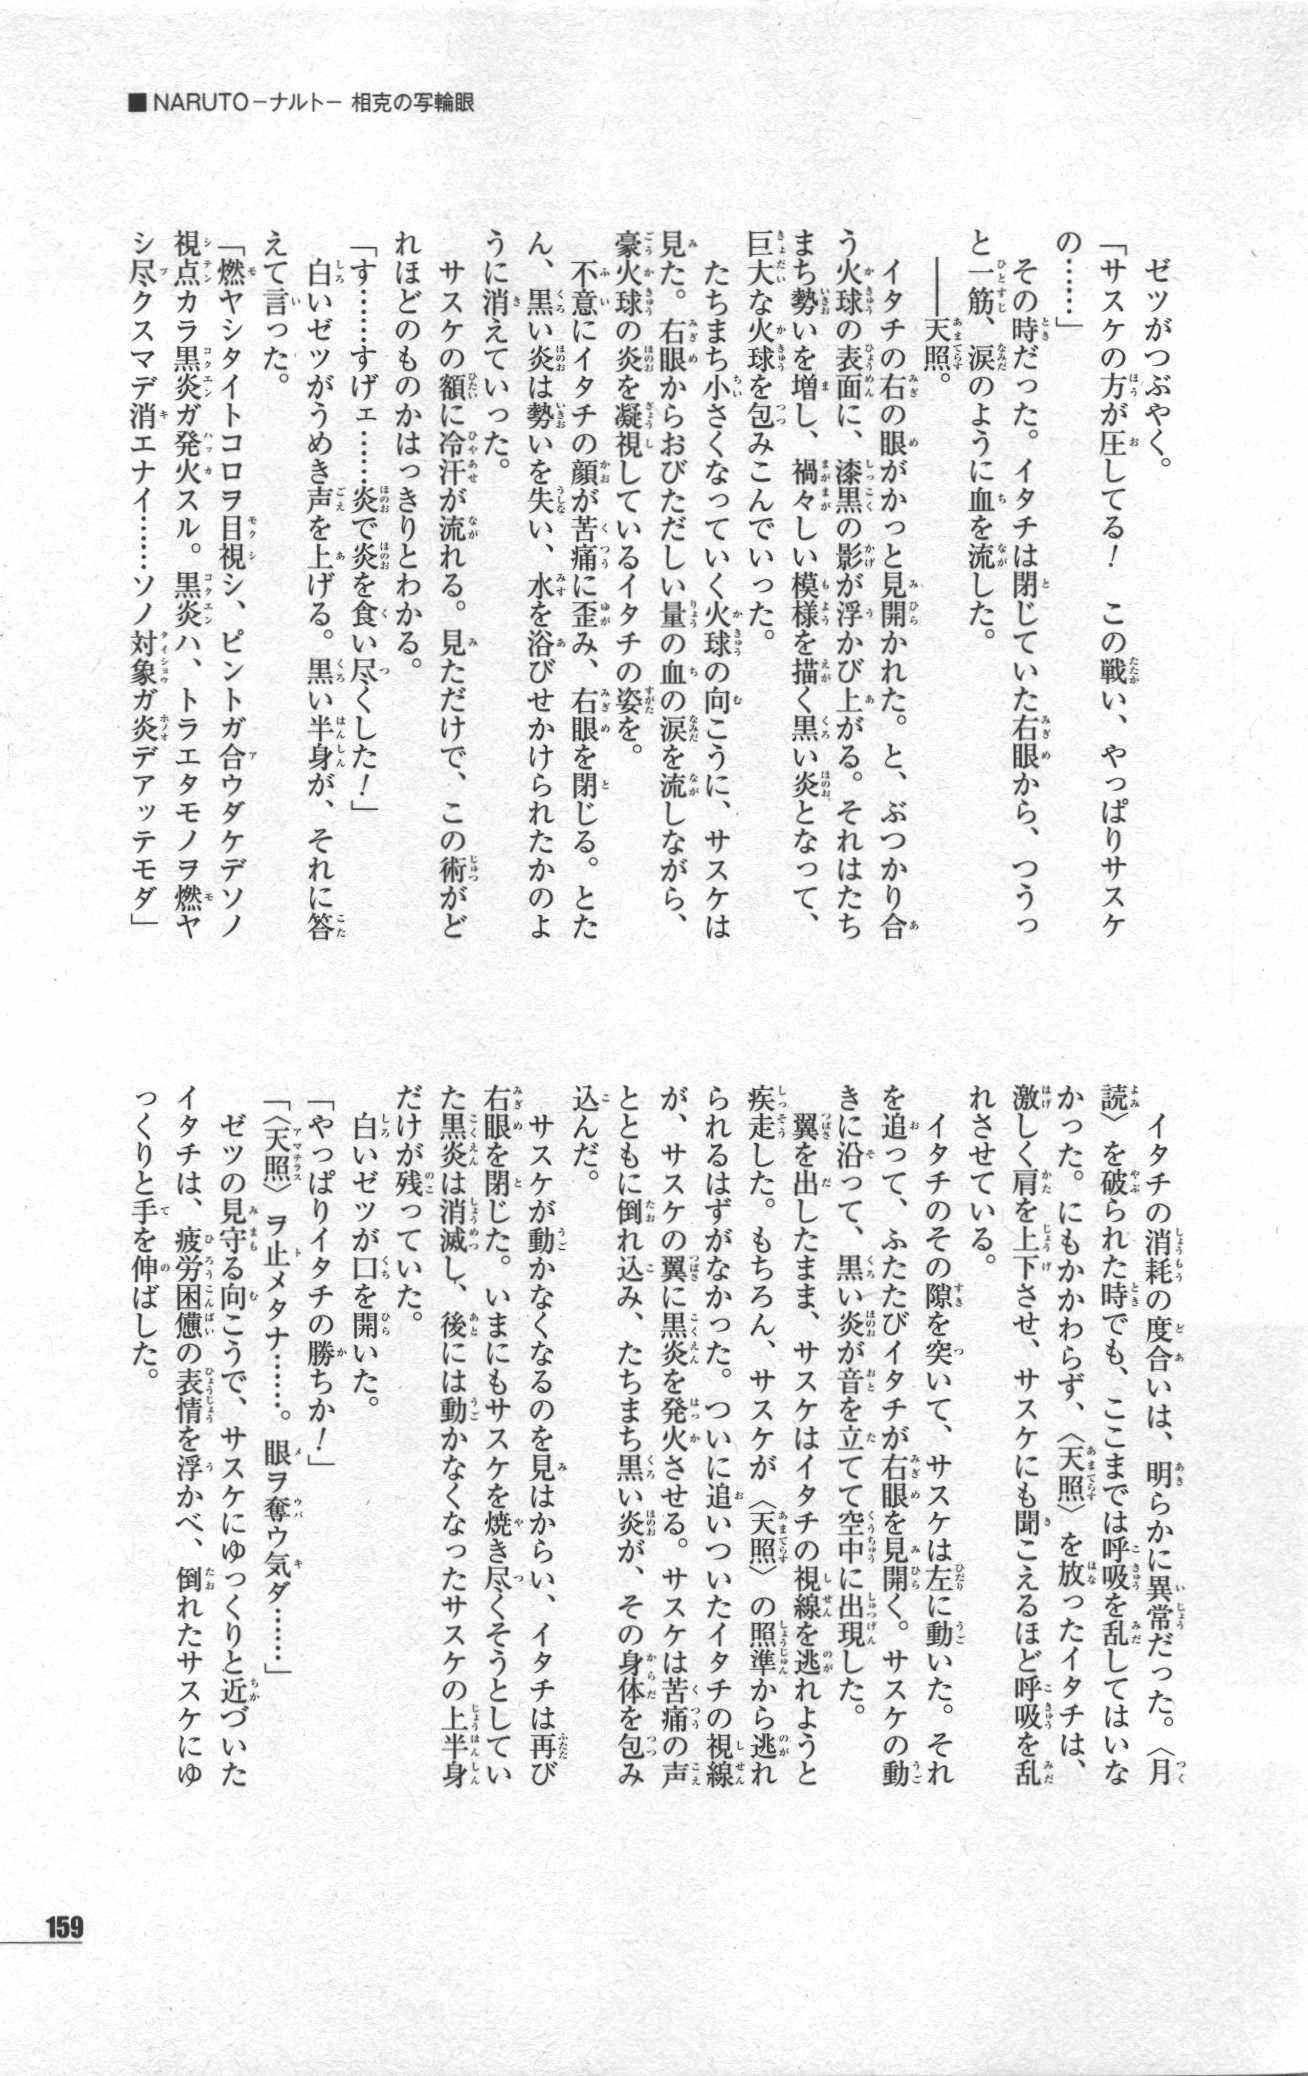 ■NARUTO－ナルト－ 相克の写輪眼
ゼツがつぶやく。
「サスケの方が圧してる！　この戦い、やっぱりサスケ
の……」
その時だった。イタチは閉じていた右眼から、つうっ
と一筋、涙のように血を流した。
――天照。
イタチの右の眼がかっと見開かれた。と、ぶつかり合
う火球の表面に、漆黒の影が浮かび上がる。それはたち
まち勢いを増し、禍々しい模様を描く黒い炎となって、
巨大な火球を包みこんでいった。
たちまち小さくなっていく火球の向こうに、サスケは
見た。右眼からおびただしい量の血の涙を流しながら、
豪火球の炎を凝視しているイタチの姿を。
不意にイタチの顔が苦痛に歪み、右眼を閉じる。とた
ん、黒い炎は勢いを失い、水を浴びせかけられたかのよ
うに消えていった。
サスケの額に冷汗が流れる。見ただけで、この術がど
れほどのものかはっきりとわかる。
「す……すげェ……炎で炎を食い尽くした！」
白いゼツがうめき声を上げる。黒い半身が、それに答
えて言った。
「燃ヤシタイトコロヲ目視シ、ピントガ合ウダケデソノ
視点カラ黒炎ガ発火スル。黒炎ハ、トラエタモノヲ燃ヤ
シ尽クスマデ消エナイ……ソノ対象ガ炎デアッテモダ」
イタチの消耗の度合いは、明らかに異常だった。〈月
読〉を破られた時でも、ここまでは呼吸を乱してはいな
かった。にもかかわらず、〈天照〉を放ったイタチは、
激しく肩を上下させ、サスケにも聞こえるほど呼吸を乱
れさせている。
イタチのその隙を突いて、サスケは左に動いた。それ
を追って、ふたたびイタチが右眼を見開く。サスケの動
きに沿って、黒い炎が音を立てて空中に出現した。
翼を出したまま、サスケはイタチの視線を逃れようと
疾走した。もちろん、サスケが〈天照〉の照準から逃れ
られるはずがなかった。ついに追いついたイタチの視線
が、サスケの翼に黒炎を発火させる。サスケは苦痛の声
とともに倒れ込み、たちまち黒い炎が、その身体を包み
込んだ。
サスケが動かなくなるのを見はからい、イタチは再び
右眼を閉じた。いまにもサスケを焼き尽くそうとしてい
た黒炎は消滅し、後には動かなくなったサスケの上半身
だけが残っていた。
白いゼツが口を開いた。
「やっぱりイタチの勝ちか！」
「〈天照〉ヲ止メタナ……。眼ヲ奪ウ気ダ……」
ゼツの見守る向こうで、サスケにゆっくりと近づいた
イタチは、疲労困憊の表情を浮かべ、倒れたサスケにゆ
っくりと手を伸ばした。
159